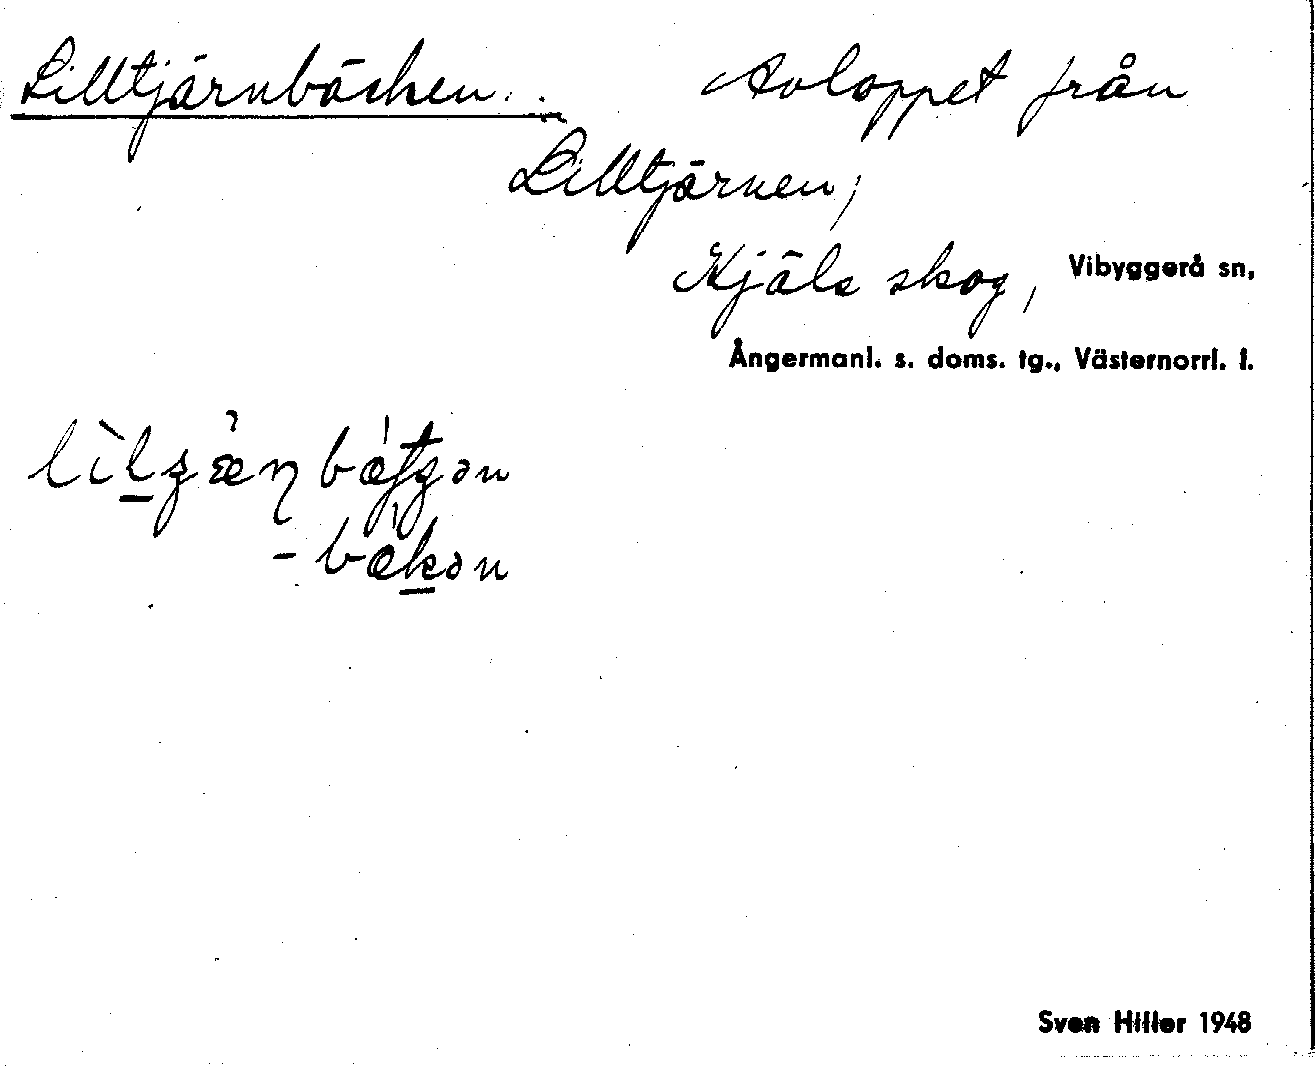 Lilltjärnbäcken. Avloppet från
Lilltjärnen,
Kjäls skog, Vibyggerå sn,
Ångermanl. s. doms. tg., Västernorrl. l.
-bækən
Sven Hiller 1948